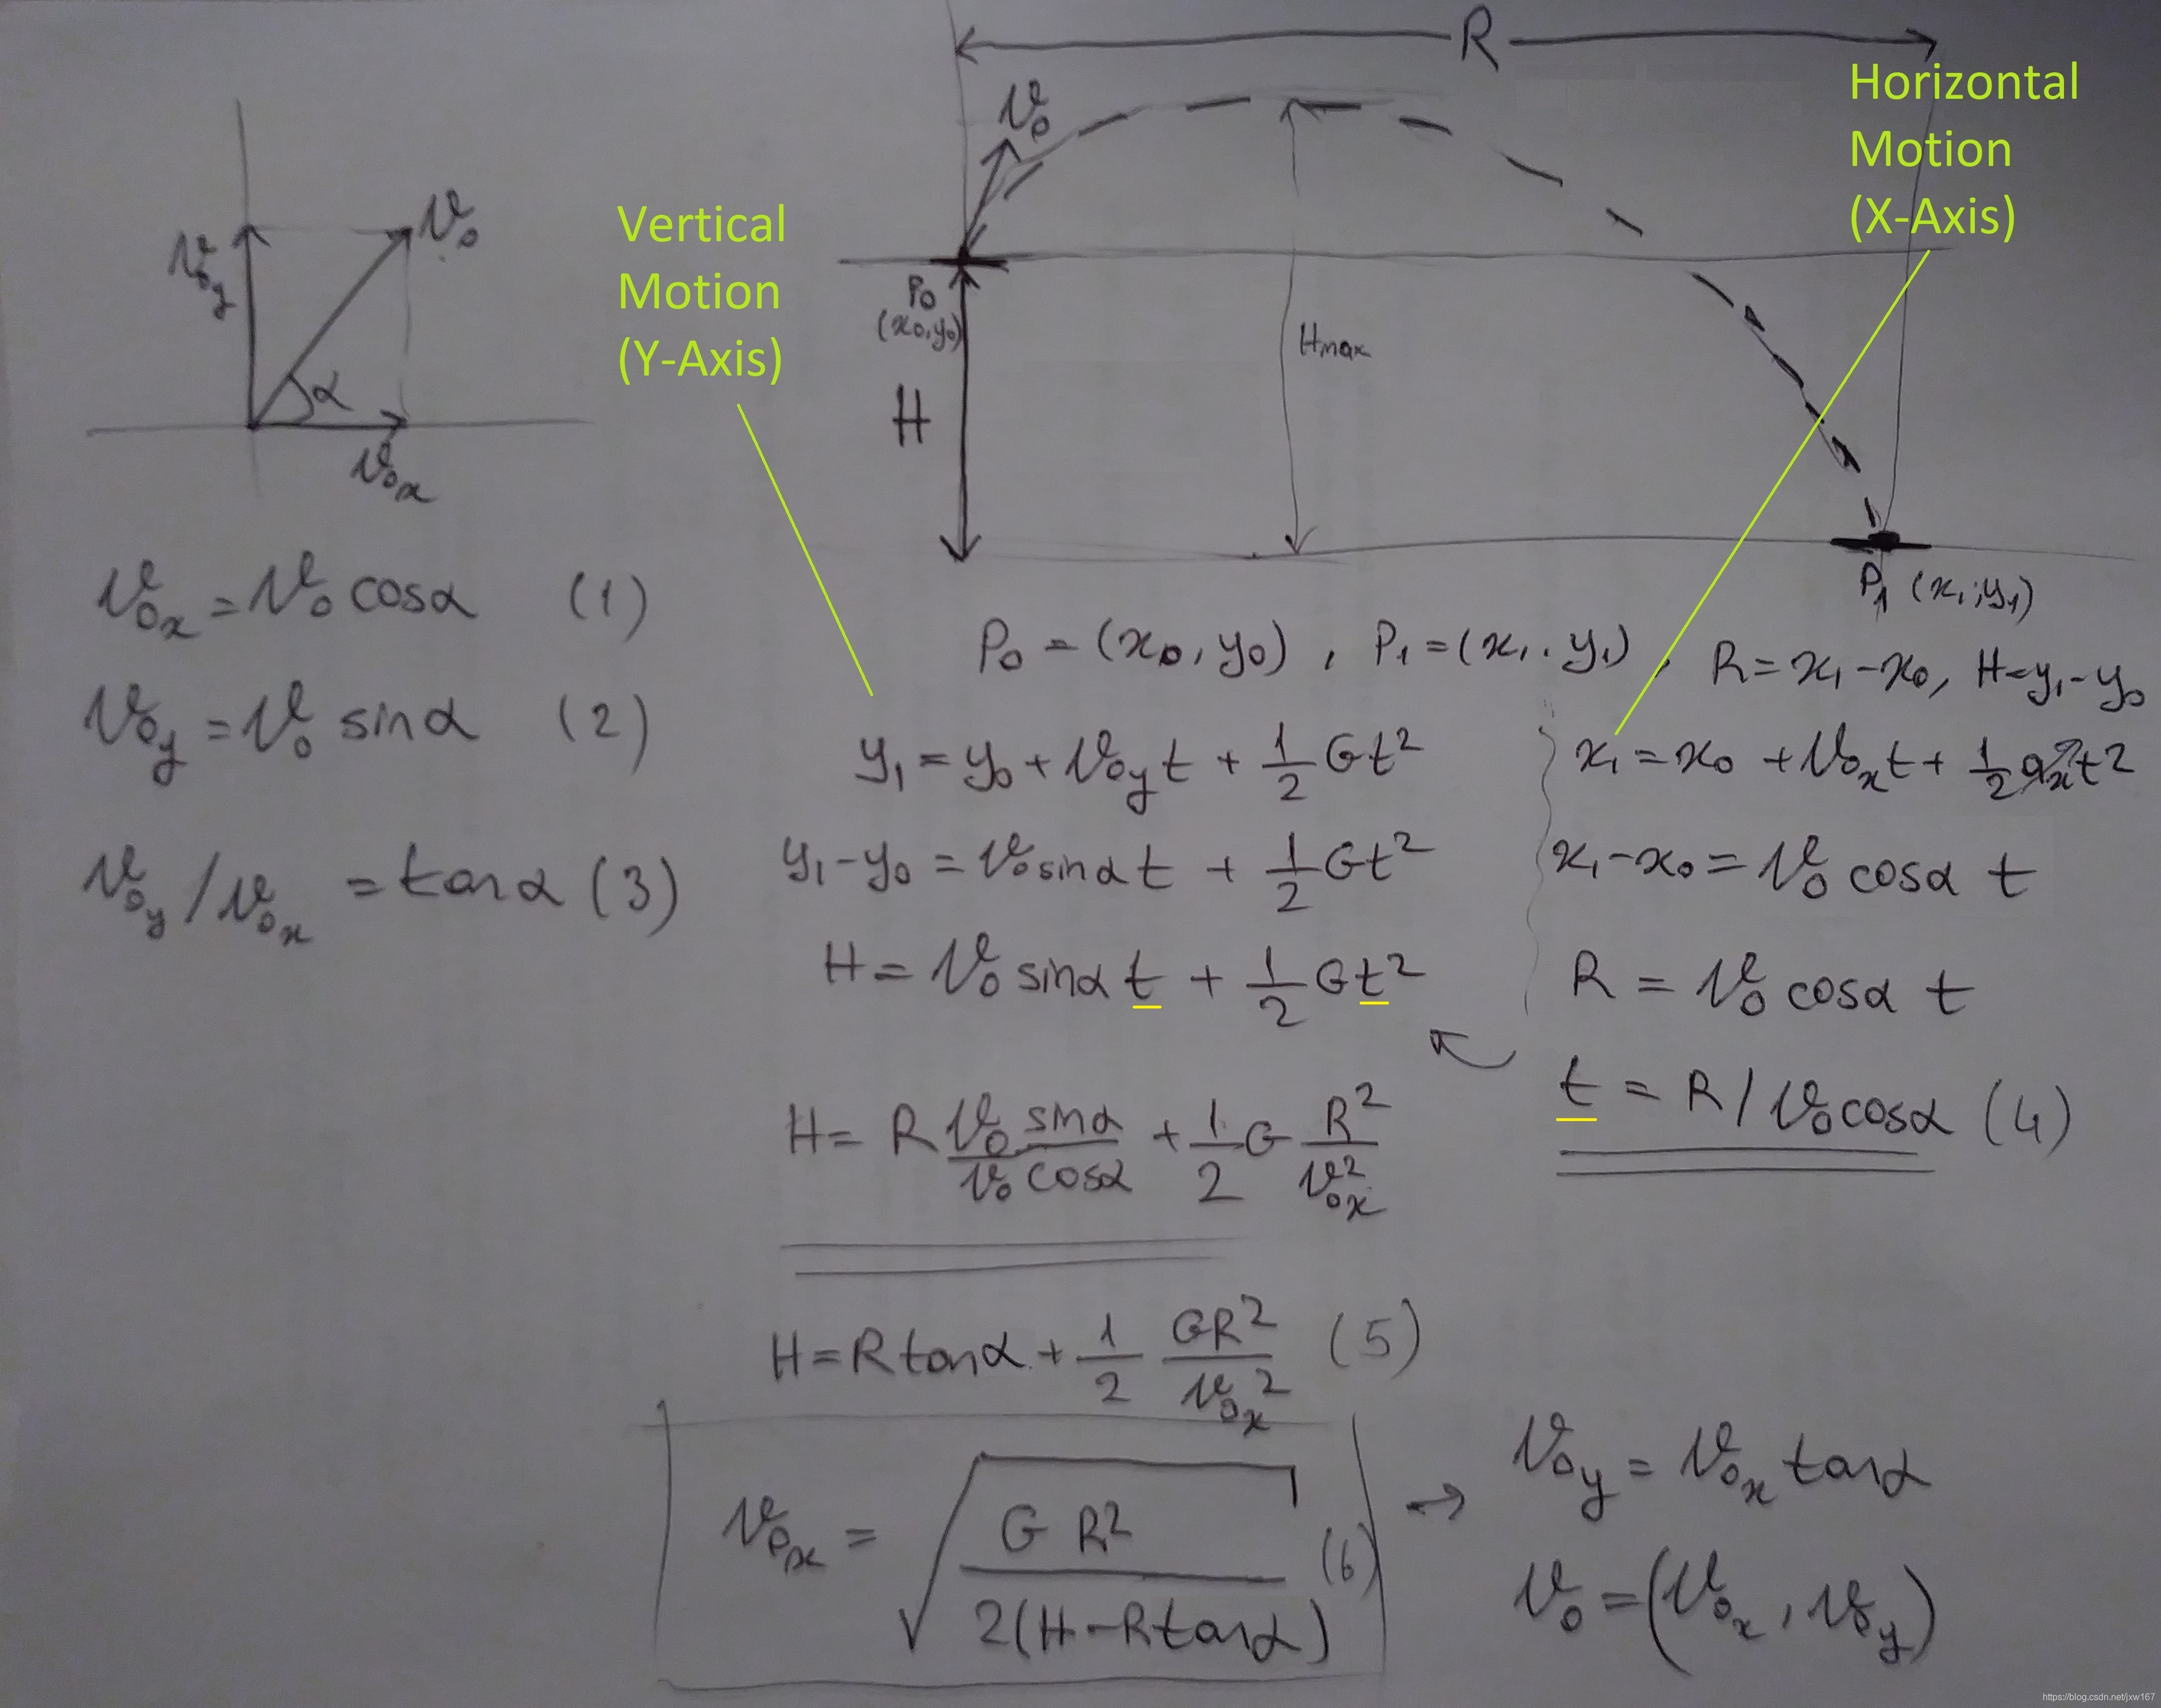 R
Horizontal
Motion
(X-Axis)
v₀
Vertical
Motion
(Y-Axis)
v₀
v₀y
α
v₀x
P₀
(x₀,y₀)
Hmax
H
P₁ (x₁;y₁)
v₀x = v₀ cosα (1)
v₀y = v₀ sinα (2)
v₀y / v₀x = tanα (3)
P₀ = (x₀, y₀) , P₁ = (x₁. y₁) , R = x₁ - x₀, H = y₁ - y₀
y₁ = y₀ + v₀y t + 1/2 G t²
y₁ - y₀ = v₀ sinα t + 1/2 G t²
H = v₀ sinα t + 1/2 G t²
x₁ = x₀ + v₀x t + 1/2 aₓ t²
x₁ - x₀ = v₀ cosα t
R = v₀ cosα t
t = R / v₀ cosα (4)
H = R v₀ sinα / v₀ cosα + 1/2 G R² / v₀x²
H = R tanα + 1/2 GR² / v₀x² (5)
v₀x = √(G R² / 2(H - R tanα)) (6)
→ v₀y = v₀x tanα
v₀ = (v₀x , v₀y)
https://blog.csdn.net/jxw167